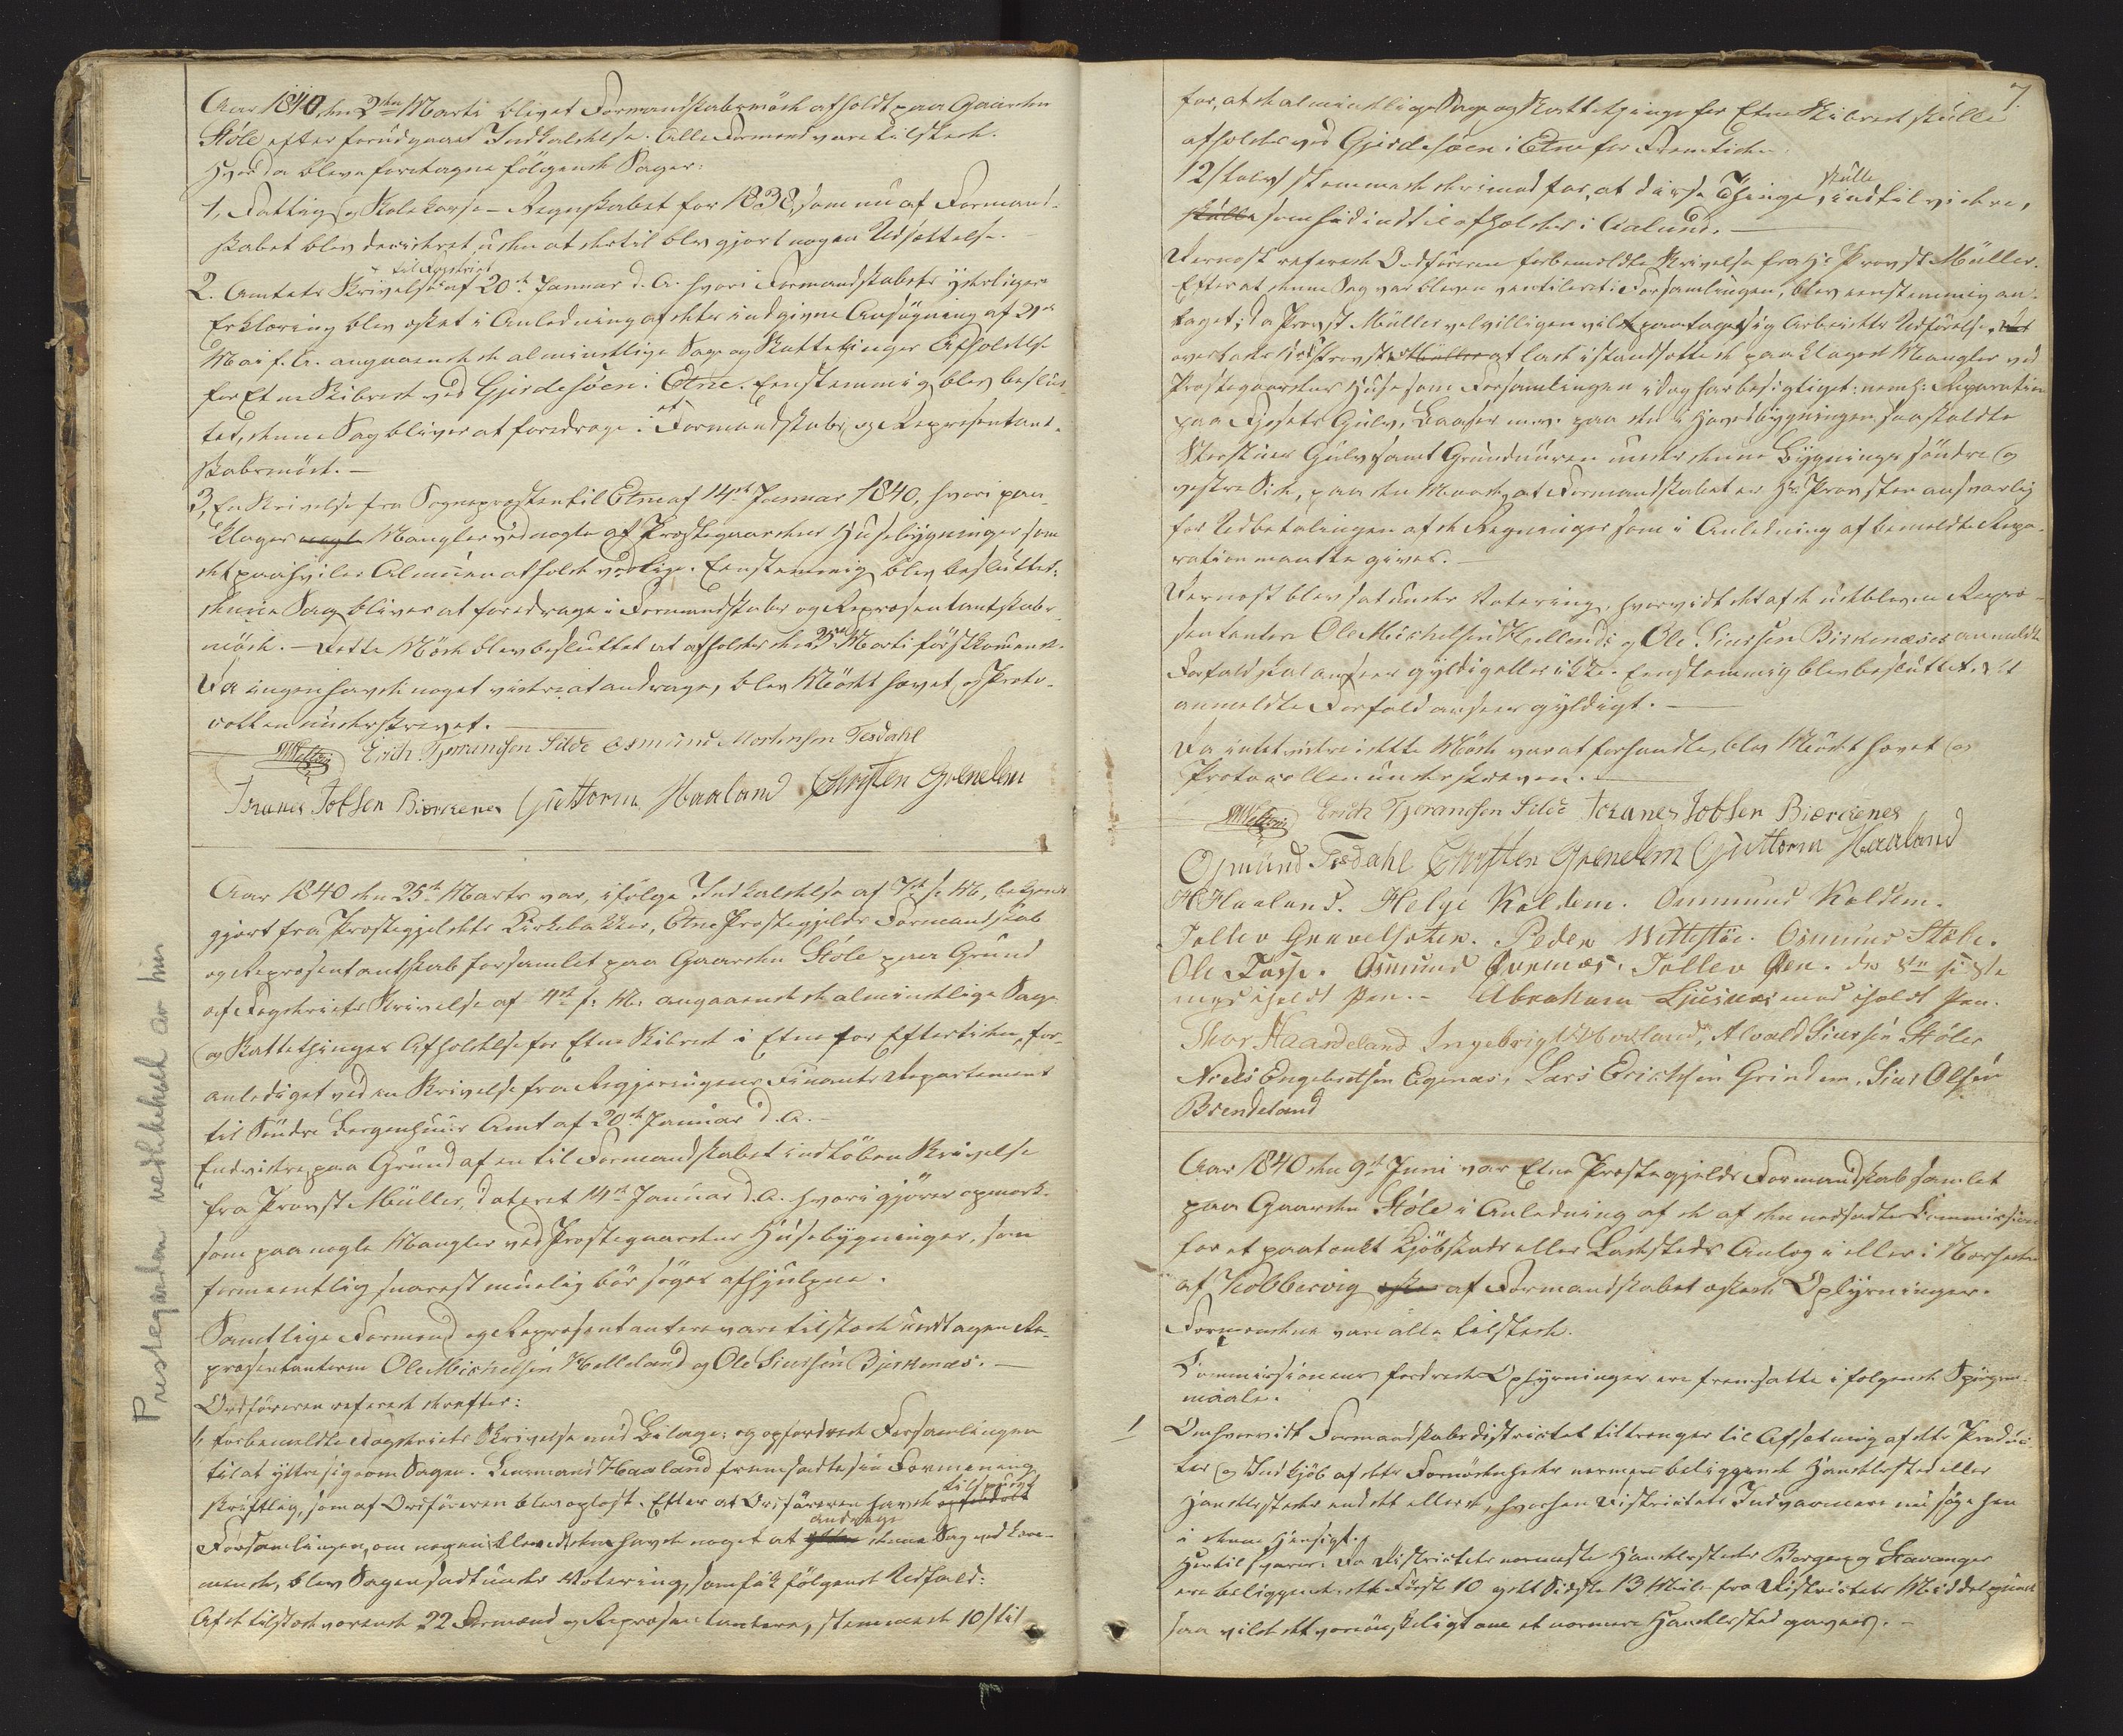 Aar 1840 den 2den Marts blivet Formandskabsmöde afholdt paa Gaarden
Stöle efter forudgaaet Indkaldelse. Alle Formænd vare tilstede.
Hvorda bleve foretagne fölgende Sager:
1, Fattig og Skolekasse-Regnskabet for 1838, som nu af Formand-
skabet blev decideret uden at dertil blev gjort nogen Udsættelse.
2. Amtets Skrivelse til Fogderiet af 20de Januar d. A. hvori Formandskabets yderligere
Erklæring blev æsket i Anledning af dets indgivne Ansögning af 2den
Mai f. A. angaaende de almindelige Sage og Skattethinges Afholdelse
for Etne Skibrede ved Gjerdesöen i Etne. Eenstemmig blev beslut-
tet, denne Sag bliver at foredrage i et Formandskabs og Repræsentant-
skabsmöde. –
3, En Skrivelse fra Sognepræsten til Etne af 14de Januar 1840, hvori paa-
klages nogle Mangler ved nogle af Præstegaardens Huusebygninger som
det paahviler Almuen at holde vedlige. Eenstemmig blev besluttet:
denne Sag bliver at foredrage i Formandskabs og Repræsentantskabs
möde. – Dette Möde blev besluttet at afholdes den 25de Marts förstkommende.
Da ingen havde noget videre at andrage, blev Mödet hævet og Proto-
collen underskrevet.
Erich Tjerandsen Silde Osmund Mortensen Tesdahl
Johanes Jobsen Biørkenes Guttorm Haaland Christen Grindem
Aar 1840 den 25de Marts var, ifölge Indkaldelse af 7de s. M., bekjendt-
gjort fra Præstegjeldets Kirkebakker, Etne Præstegjelds Formandskab
og Repræsentantskab forsamlet paa Gaarden Stöle paa Grund
af Fogderiets Skrivelse af 4de f. M. angaaende de almindelige Sage
og Skattethinges Afholdelse for Etne Skibrede i Etne for Eftertiden, for-
anlediget ved en Skrivelse fra Regjeringens Finants Departement
til Söndre Bergenhuus Amt af 20de Januar d. A. –
Endvidere paa Grund af en til Formandskabet indlöben Skrivelse
fra Provst Müller, dateret 14de Januar d. A. hvori gjöres opmærk-
som paa nogle Mangler ved Præstegaardens Huusebygninger, som
formeentlig snarest muelig bör söges afhjulpne.
Samtlige Formænd og Repræsentantere vare tilstede undtagen Re-
præsentanterne Ole Michelsen Helleland og Ole Siursen Bjerkenæs. –
Ordföreren referede derefter:
1, forbemeldte Fogderiets Skrivelse med Bilage; og opfordrede Forsamlingen
til at yttre sig om Sagen. Lensmand Haaland fremsadte sin Formening
skriftlig, som af Ordföreren blev oplæst. Efter at Ordföreren havde tilspurgt
Forsamlingen, om nogen iblandt den havde noget at andrage denne Sag vedkom-
mende, blev Sagen sadt under Votering, som fik fölgende Udfald:
Af de tilstedeværende 22 Formænd og Repræsentantere, stemmede 10 /ti/
Prestegarden vedlikehold av hus
7.
for, at de almindelige Sage og Skattethinge for Etne Skibrede skulle
afholdes ved Gjerdesøen i Etne for Fremtiden.
12 /tolv/ stemmede derimod for, at disse Thinge, skulle indtil videre,
skulle som hidindtil afholdes i Aalund.
Dernæst referede Ordföreren forbemeldte Skrivelse fra Hr Provst Müller.
Efter at denne Sag var bleven ventileret i Forsamlingen, blev eenstemmig an-
taget; da Provst Müller velvilligen vilde paatage sig Arbeidets Udförelse,
overlades Hr Provst Müller at lade istandsætte de paaklagede Mangler ved
Præstegaardens Huse som Forsamlingen idag har besigtiget: nemlig: Reparation
paa Fjösets Gulv, Baaser m.v. paa det i Hovedbygningen saakaldte
Storstues Gulv samt Grundmuren under denne Bygnings söndre og
vestre Side, paa den Maade, at Formandskabet er Hr Provsten ansvarlig
for Udbetalingen af de Regninger som i Anledning af bemeldte Repa-
ration maatte gives. –
Dernæst blev sat under Votering, hvorvidt det af de udeblevne Repræ-
sentanter Ole Michelsen Hellelands og Ole Siursen Birkenæses anmeldte
Forfald skal ansees gyldig eller ikke. Eenstemmig blev besluttet, det
anmeldte Forfald ansees gyldigt. –
Da intet videre i dette Möde var at forhandle, blev Mödet hævet og
Protocollen underskreven.
Erich Tjerandsen Silde Johanes Jobsen Biørckenes
Osmund Tesdahl Christen Grindem Guttorm Haaland
H Haaland. Helge Kaldem. Ommund Kaldem.
Tollev Gravelseter. Peder Wettestöe. Osmund Støle.
Ole Fosse. Osmund Øvernæs. Tollev
med iholdt Pen. – Abraham Ljusnes med iholdt Pen.
Thor Haardeland Ingebrigt Haaland, Alvald Siursen Støler
Niels Engebretsen Egenæs, Lars Erichsen Grindem, Siur Olsen
Brendeland
Aar 1840 den 9de Juni var Etne Præstegjelds Formandskab samlet
paa Gaarden Støle i Anledning af de af den nedsadte Commission
for et paatænkt Kjöbstads eller Ladesteds Anlæg i eller i Nærheden
af Kobbervig af Formandskabet æskede Oplysninger.
Formændene vare alle tilstede.
Commissionens fordrede Oplysninger ere fremsatte i fölgende Spörgs-
maale.
1 Om hvorvidt Formandskabsdistrictet tiltrænger til Afsætning af dets Produc-
ter og Indkjöb af dets Fornödenheder nærmere beliggende Handelssted eller
Handelssteder end det eller de, hvorhen Districtets Indvaanere nu söge hen
i denne Hensigt.
Hertil svares: Da Districtets nærmeste Handelssteder Bergen og Stavanger
ere beliggende, det Förste 10 og det Sidste 13 Mile fra Districtets Middelpunkt
saa vilde det være önskeligt om et nærmere Handelssted gaves. –